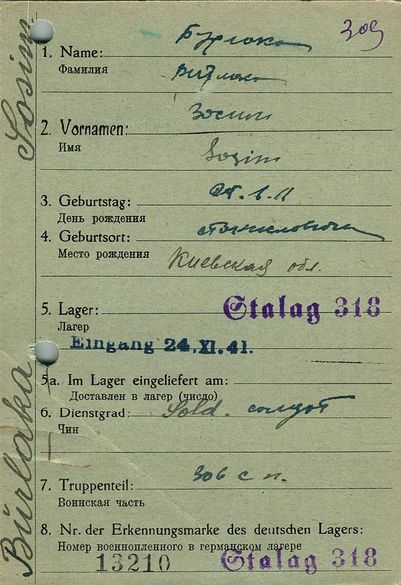 309
1. Name: Бурлака
Фамилия Burlaka
2. Vornamen: Зосим
Имя Sosim
3. Geburtstag:
День рождения
4. Geburtsort:
Место рождения Киевская обл.
5. Lager: Stalag 318
Лагер
Eingang 24. XI. 41.
5a. Im Lager eingeliefert am:
Доставлен в лагер (число)
6. Dienstgrad: Sold. солдат
Чин
7. Truppenteil: 306 с п.
Воинская часть
8. Nr. der Erkennungsmarke des deutschen Lagers:
Номер военнопленного в германском лагере
13210 Stalag 318
Bürlaka Sosim